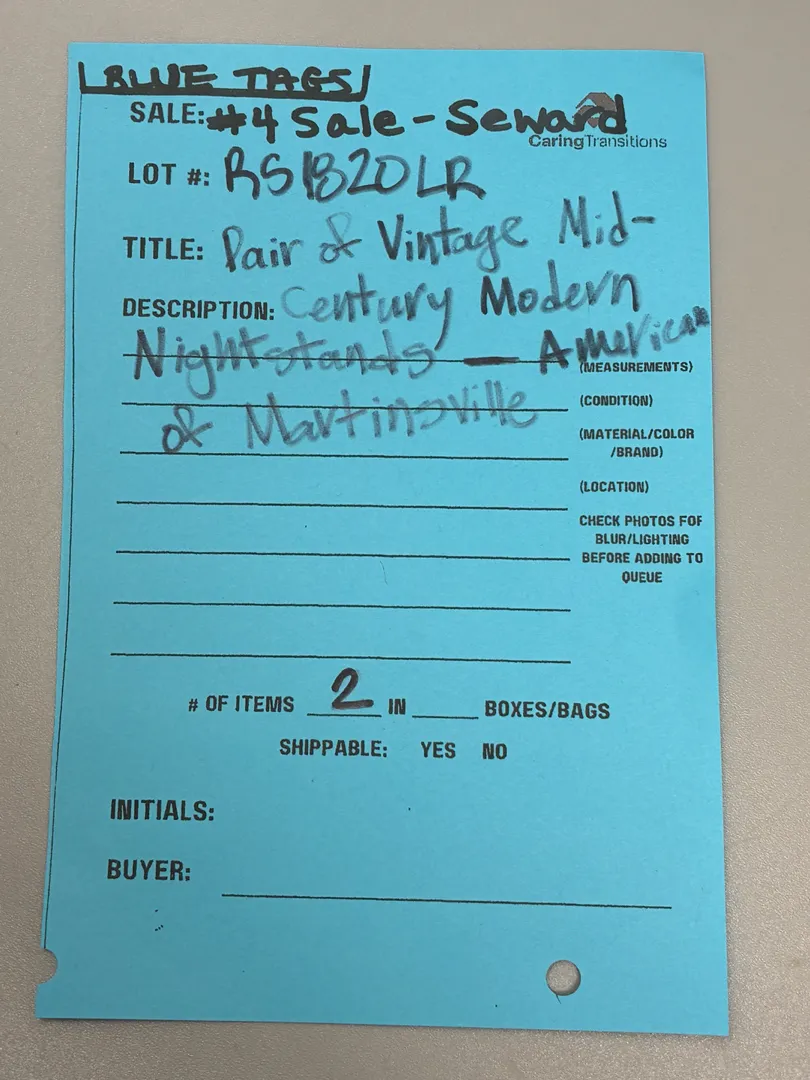 BLUE TAGS
SALE: #4 Sale - Seward
CaringTransitions
LOT #: RS1820LR
TITLE: Pair of Vintage Mid-
DESCRIPTION: Century Modern
Nightstands — American
(MEASUREMENTS)
of Martinsville
(CONDITION)
(MATERIAL/COLOR
/BRAND)
(LOCATION)
CHECK PHOTOS FOR
BLUR/LIGHTING
BEFORE ADDING TO
QUEUE
# OF ITEMS 2 IN BOXES/BAGS
SHIPPABLE: YES NO
INITIALS:
BUYER: